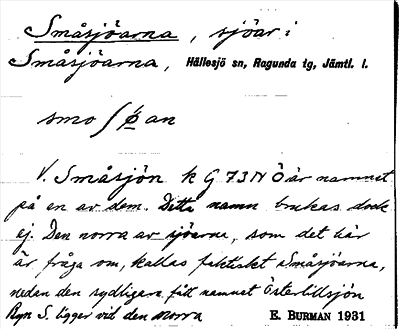 Småsjöarna, sjöar i
Småsjöarna, Hällesjö sn, Ragunda tg, Jämtl. l.
smo ʃ an
V. Småsjön k G 73 N Ö är namnet
på en av dem. Detta namn brukas dock
ej. Den norra av sjöarna, som det här
är fråga om, kallas faktiskt Småsjöarna,
medan den sydligare fått namnet Österlillsjön
S. ligger vid den norra E. BURMAN 1931